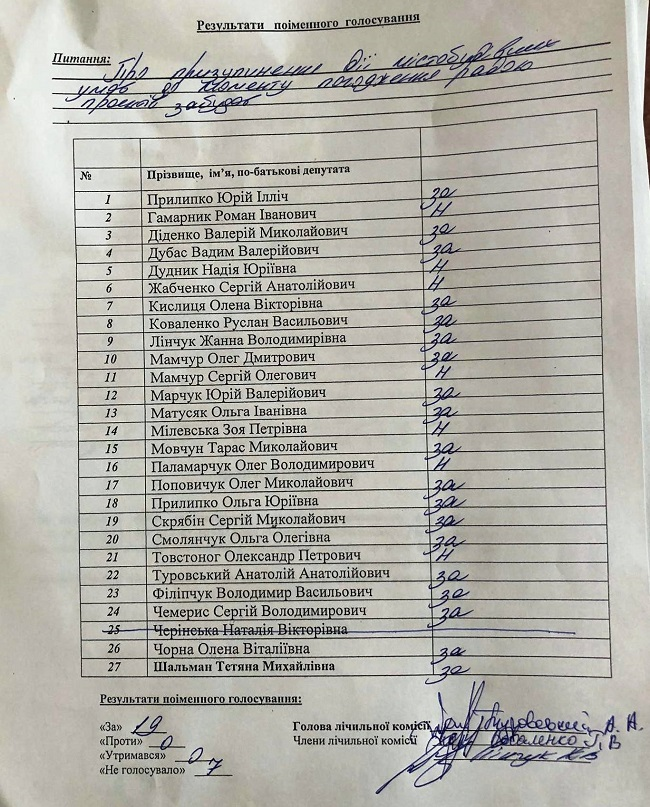 Результати поіменного голосування
Питання: Про призупинення дії містобудівних
умов до моменту погодження радою
проекту забудов
№ Прізвище, ім’я, по-батькові депутата
1 Прилипко Юрій Ілліч за
2 Гамарник Роман Іванович н
3 Діденко Валерій Миколайович за
4 Дубас Вадим Валерійович за
5 Дудник Надія Юріївна н
6 Жабченко Сергій Анатолійович н
7 Кислиця Олена Вікторівна за
8 Коваленко Руслан Васильович за
9 Лінчук Жанна Володимирівна за
10 Мамчур Олег Дмитрович за
11 Мамчур Сергій Олегович н
12 Марчук Юрій Валерійович за
13 Матусяк Ольга Іванівна за
14 Мілевська Зоя Петрівна н
15 Мовчун Тарас Миколайович за
16 Паламарчук Олег Володимирович н
17 Поповичук Олег Миколайович за
18 Прилипко Ольга Юріївна за
19 Скрябін Сергій Миколайович за
20 Смолянчук Ольга Олегівна за
21 Товстоног Олександр Петрович н
22 Туровський Анатолій Анатолійович за
23 Філіпчук Володимир Васильович за
24 Чемерис Сергій Володимирович за
25 Черінська Наталія Вікторівна
26 Чорна Олена Віталіївна за
27 Шальман Тетяна Михайлівна за
Результати поіменного голосування:
«За» 19 Голова лічильної комісії Туровський А. А.
«Проти» 0 Члени лічильної комісії Коваленко В
«Утримався» 0 Лінчук
«Не голосувало» 7